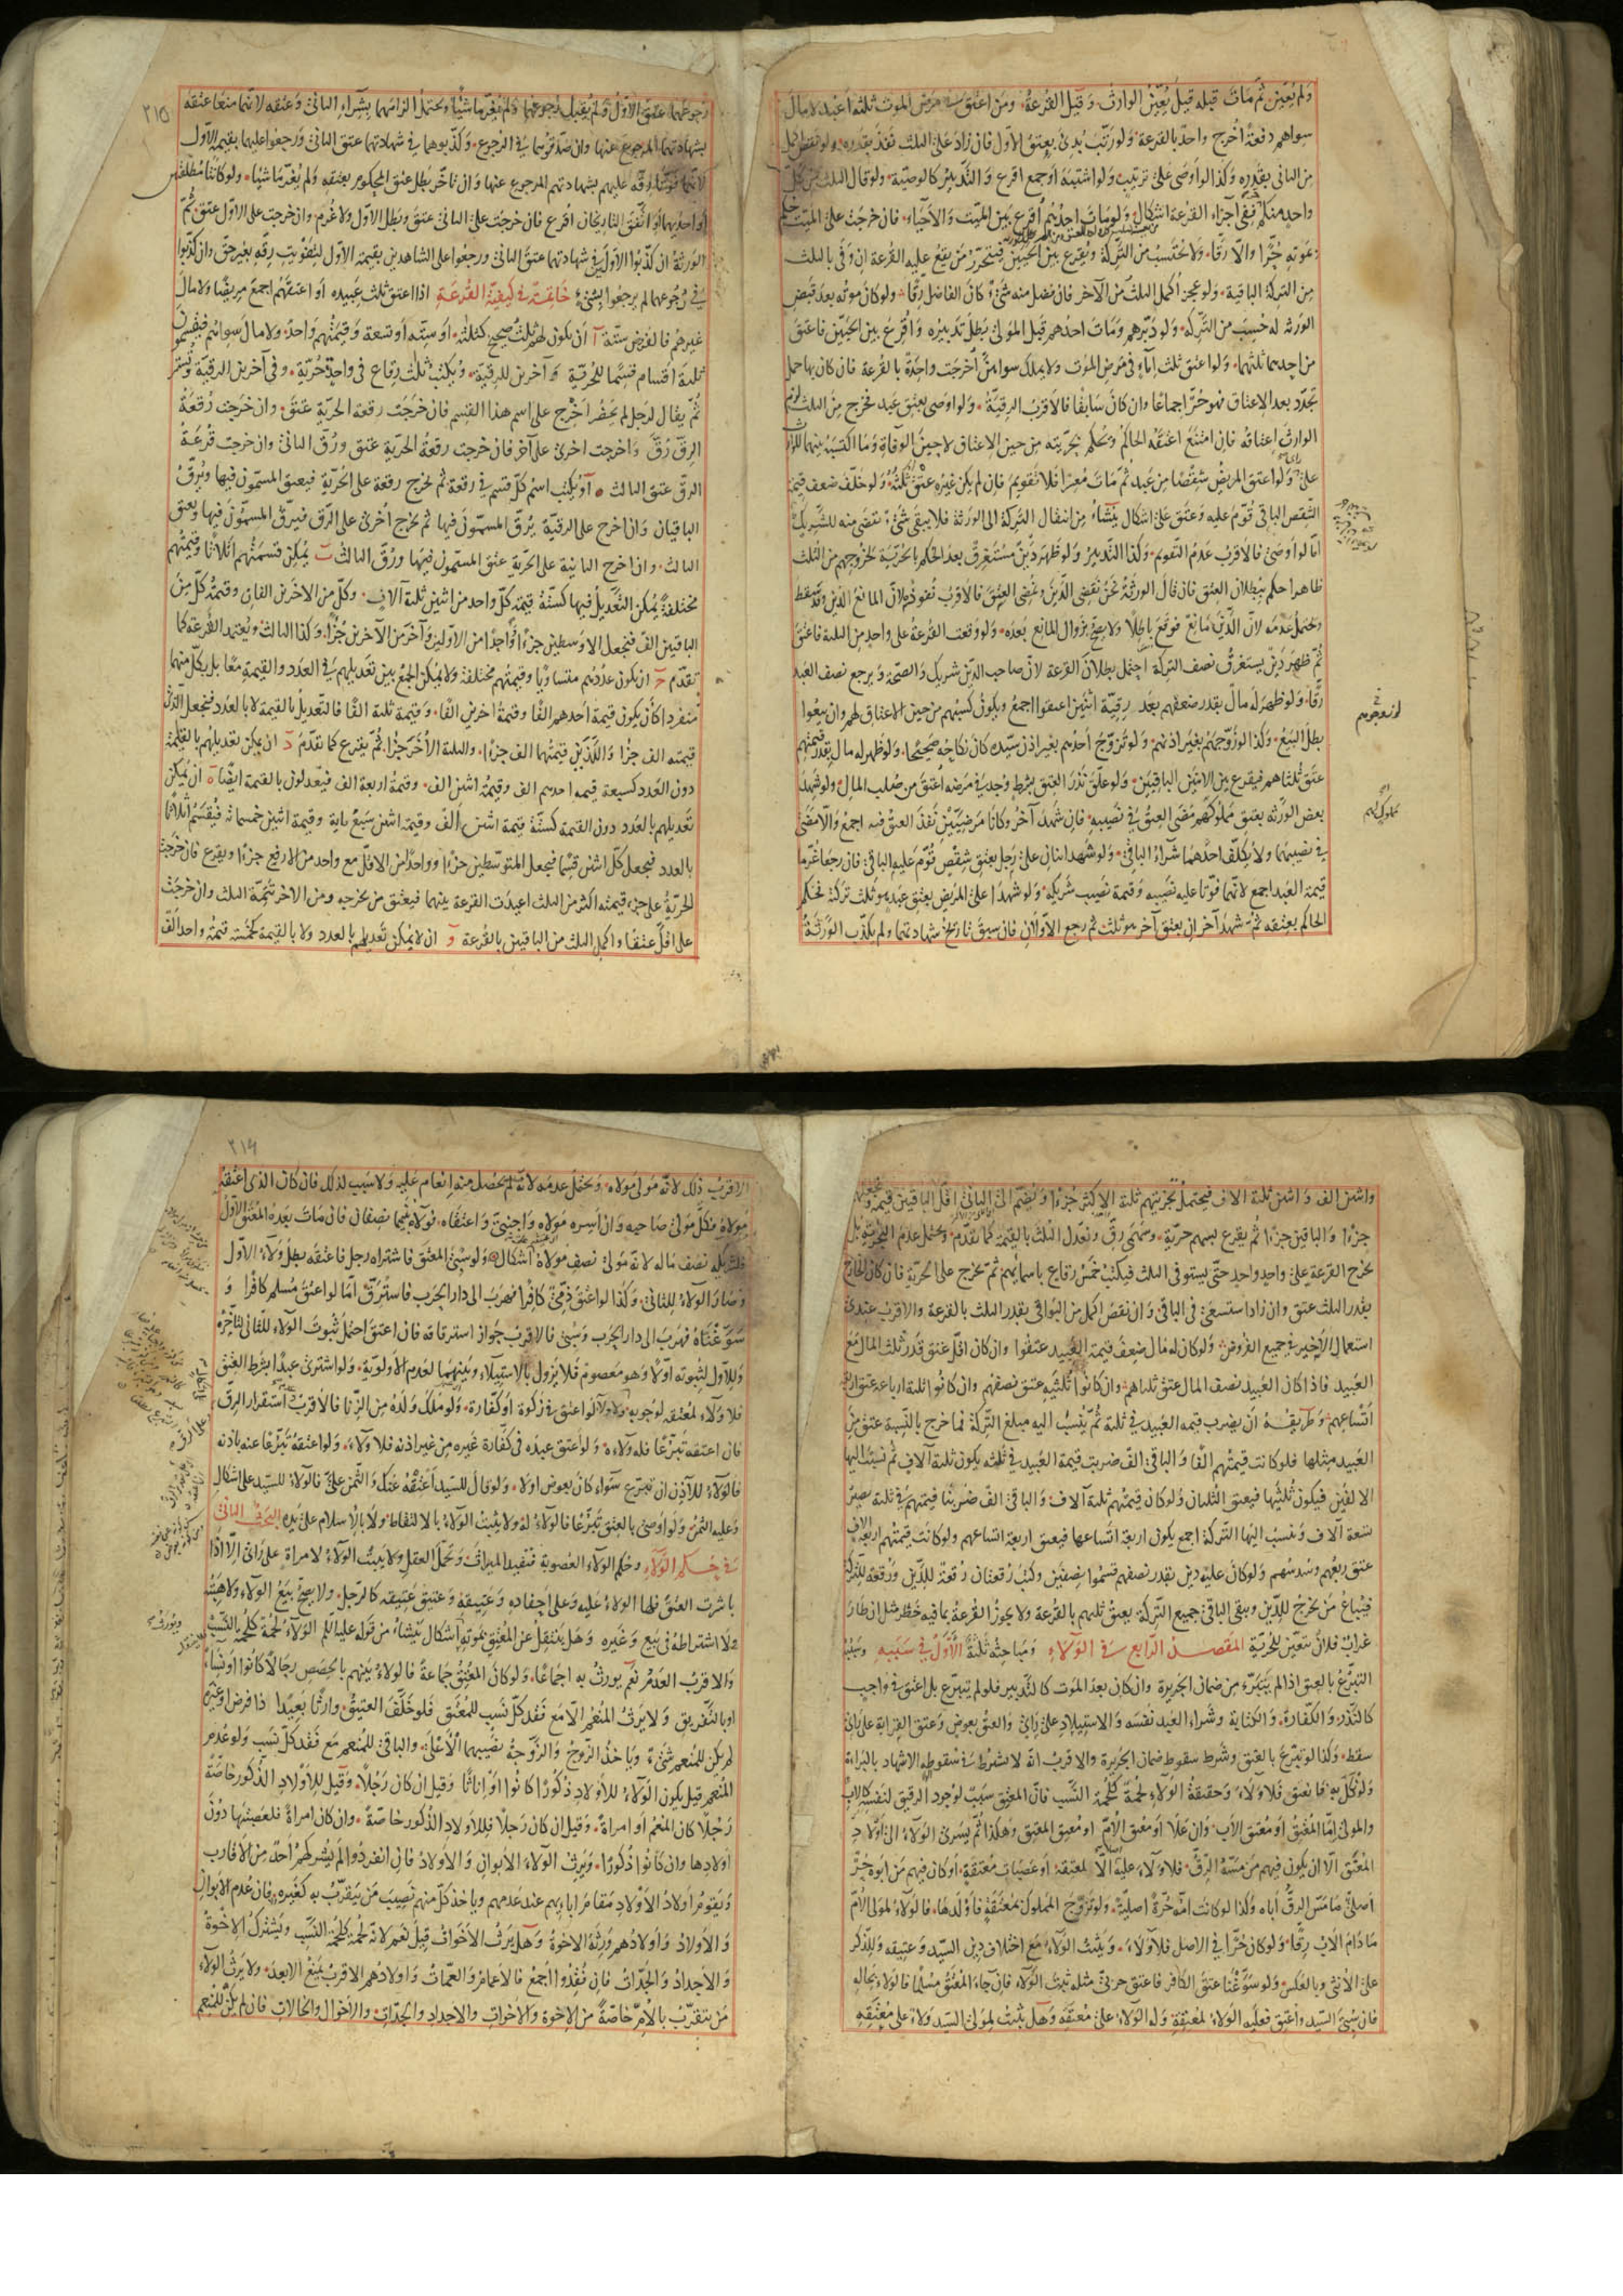 ولم يعين ثم مات قبله قيل يعين الوارث وقيل القرعة ومن اعتق في مرض الموت ثلثه اعبد لا مال
سواهم دفعة اخرج واحد بالقرعة ولو رتب بدئ بعتق الاول فان زاد على الثلث نفذ بقدره ولو نقص اكمل
من الثاني بقدره وكذا لو اوصى على ترتيب ولو اشتبه او جمع اقرع والتدبير كالوصية ولو قال الثلث من كل
واحد منكم ففي اجزاء القرعة اشكال ولو مات احدهم اقرع بين الميت والاحياء فان خرجت على الميت حكم
بموته حرا والا رقا ولا يحتسب من التركة ويقرع بين الحيين فيتحرر من يقع عليه القرعة ان وفى بالثلث
من التركة الباقية ولو عجز اكمل الثلث من الآخر فان فضل منه شيء كان الفاضل رقا ولو كان موته بعد قبض
الورثه له حسب من التركه ولو دبرهم ومات احدهم قبل المولى بطل تدبيره واقرع بين الحيين فاعتق
من احدهما ثلثهما ولو اعتق ثلث اماء في مرض الموت ولا يملك سواهن اخرجت واحدة بالقرعة فان كان بها حمل
تجدد بعد الاعتاق فهو حر اجماعا وان كان سابقا فالاقرب الرقية ولو اوصى بعتق عبد فخرج من الثلث لزم
الوارث اعتاقه فان امتنع اعتقه الحاكم ويحكم بحريته من حين الاعتاق لا حين الوفاة وما اكتسبه بينهما للوارث
على راي ولو اعتق المريض شقصا من عبد ثم مات معسرا فلا تقويم فان لم يكن غيره عتق ثلثه ولو خلف ضعف قيمة
الشقص الباقي قوم عليه وعتق على اشكال ينشاء من انتقال التركة الى الورثة فلا يبقى شيء نقضى منه للشريك
اما لو اوصى فالاقرب عدم التقويم وكذا التدبير ولو ظهر دين مستغرق بعد الحكم بالحرية لخروجهم من الثلث
ظاهرا حكم ببطلان العتق فان قال الورثة نحن نقضي الدين ونمضي العتق فالاقرب نفوذه لان المانع الدين وقد سقط
ويحتمل عدمه لان الدين مانع فوقع باطلا ولا يصح بزوال المانع بعده ولو وقعت القرعة على واحد من الثلثة فاعتق
ثم ظهر دين يستغرق نصف التركة احتمل بطلان القرعة لان صاحب الدين شريك والصحة ويرجع نصف العبد
رقا ولو ظهر له مال بقدر ضعفهم بعد رقية اثنين اعتقوا اجمع ويكون كسبهم من حين الاعتاق لهم وان بيعوا
بطل البيع وكذا لو زوجهم بغير اذنهم ولو تزوج احدهم بغير اذن سيده كان نكاحه صحيحا ولو ظهر له مال بقدر قيمتهم
عتق ثلثاهم فيقرع بين الاثنين الباقيين ولو علق نذر العتق بشرط وجد في مرضه اعتق من صلب المال ولو شهد
بعض الورثة بعتق مملوكهم مضى العتق في نصيبه فان شهد آخر وكانا مرضيين نفذ العتق فيه اجمع والا مضى
في نصيبهما ولا يكلف احدهما شراء الباقي ولو شهد اثنان على رجل بعتق شقص قوم عليه الباقي فان رجعا غرما
قيمة العبد اجمع لانهما فوتا عليه نصيبه وقيمة نصيب شريكه ولو شهدا على المريض بعتق عبد هو ثلث تركة فحكم
الحاكم بعتقه ثم شهد آخران بعتق آخر هو ثلث ثم رجع الاولان فان سبق تاريخ شهادتهما ولم يكذب الورثة
٢١٥
رجوعهما عتق الاول ولم يقبل رجوعهما ولم يغرما شيئا ويحتمل الزامهما بشراء الثاني وعتقه لانهما منعا عتقه
بشهادتهما المرجوع عنها وان صدقوهما في الرجوع وكذبوهما في شهادتهما عتق الثاني ورجعوا عليهما بقيمة الاول
لانهما فوتا رقه عليهم بشهادتهم المرجوع عنها وان تاخر بطل عتق المحكوم بعتقه ولم يغرما شيئا ولو كانتا مطلقتين
او احديهما او اتفق التاريخان اقرع فان خرجت على الثاني عتق وبطل الاول ولا غرم وان خرجت على الاول عتق ثم
الورثة ان كذبوا الاولى في شهادتهما عتق الثاني ورجعوا على الشاهدين بقيمة الاول لتفويت رقه بغير حق وان كذبوا
في رجوعهما لم يرجعوا بشيء خاتمة في كيفية القرعة اذا اعتق ثلث عبيده او اعتقهم اجمع مريضا ولا مال
غيرهم فالفرض ستة آ ان يكون لهم ثلث صحيح كثلثه او سته او تسعة وقيمتهم واحدة ولا مال سواهم فيقسمون
ثلثة اقسام قسما للحرية وآخرين للرقية ويكتب ثلث رقاع في واحدة حرية وفي آخرين الرقية وتستر
ثم يقال لرجل لم يحضر اخرج على اسم هذا القسم فان خرجت رقعة الحرية عتق وان خرجت رقعة
الرق رق واخرجت اخرى على آخر فان خرجت رقعة الحرية عتق ورق الثاني وان خرجت قرعة
الرق عتق الثالث او يكتب اسم كل قسم في رقعة ثم يخرج رقعة على الحرية فيعتق المسمون فيها ويرق
الباقيان وان اخرج على الرقية يرق المسمون فيها ثم يخرج اخرى على الرق فيرق المسمون فيها ويعتق
الثالث وان اخرج الثانية على الحرية عتق المسمون فيها ورق الثالث ب يمكن قسمتهم اثلاثا وقيمتهم
مختلفة يمكن التعديل فيها كستة قيمة كل واحد من اثنين ثلثة آلاف وكل من الاخرين الفان وقيمة كل من
الباقيين الف فنجعل الاوسطين جزءا واحدا من الاولين وآخر من الآخرين جزءا وكذا الثالث ويعتمد القرعة كما
تقدم ج ان يكون عددهم متساويا وقيمتهم مختلفة ولا يمكن الجمع بين تعديلهم في العدد والقيمة معا بل بكل منهما
منفردا كان يكون قيمة احدهم الفا وقيمة اخرين الفا وقيمة ثلثة الفا فالتعديل بالقيمة لا بالعدد فنجعل الذي
قيمته الف جزءا واللذين قيمتهما الف جزءا والثلثة الاخر جزءا ثم يقرع كما تقدم د ان يمكن تعديلهم بالقيمة
دون العدد كسبعة قيمه احدهم الف وقيمة اثنين الف وقيمة اربعة الف فيعدلون بالقيمة ايضا ه ان يمكن
تعديلهم بالعدد دون القيمة كستة قيمة اثنين الف وقيمة اثنين سبع ماية وقيمة اثنين خمسمائه فيقسم اثلاثا
بالعدد فيجعل كل اثنين قسما فيجعل المتوسطين جزءا وواحدا من الاقل مع واحد من الارفع جزءا ويقرع فان خرجت
الحرية على جزء قيمته اكثر من الثلث اعيدت القرعة بينهما فيعتق من يخرجه ومن الاخر تتمة الثلث وان خرجت
على اقل عتقا واكمل الثلث من الباقين بالقرعة و ان لا يمكن تعديلهم بالعدد ولا بالقيمة كخمسة قيمة واحد الف
واثنين الف واثنين ثلثة الاف فيحتمل تجزيتهم ثلثة الاكثر جزءا ويضم الى الثاني اقل الباقين قيمة ويجعلهما
جزءا والباقين جزءا ثم يقرع بسهم حرية وسهمي رق ونعدل الثلث بالقيمة كما تقدم ويحتمل عدم التجزية بل
يخرج القرعة على واحد واحد حتى يستوفى الثلث فيكتب خمس رقاع باسمائهم ثم يخرج على الحرية فان كان الخارج
بقدر الثلث عتق وان زاد استسعى في الباقي وان نقص اكمل من البواقي بقدر الثلث بالقرعة والاقرب عندي
استعمال الاخير في جميع الفروض ولو كان له مال ضعف قيمة العبيد عتقوا وان كان اقل عتق قدر ثلث المال مع
العبيد فاذا كان العبيد نصف المال عتق ثلثاهم وان كانوا ثلثيه عتق نصفهم وان كانوا ثلثة ارباعه عتق اربعة
اتساعهم وطريقه ان يضرب قيمه العبيد في ثلثة ثم ينسب اليه مبلغ التركة فما خرج بالنسبة عتق من
العبيد مثلها فلو كانت قيمتهم الفا والباقي الف ضربت قيمة العبيد في ثلثه يكون ثلثة آلاف ثم نسبت اليها
الالفين فيكون ثلثيها فيعتق الثلثان ولو كان قيمتهم ثلثة آلاف والباقي الف ضربنا قيمتهم في ثلثة يصير
تسعة آلاف وننسب اليها التركة اجمع يكون اربعة اتساعها فيعتق اربعة اتساعهم ولو كانت قيمتهم اربعة آلاف
عتق ربعهم وسدسهم ولو كان عليه دين بقدر نصفهم قسموا نصفين وكتب رقعتان رقعة للدين ورقعة للتركة
فيباع من يخرج للدين ويبقى الباقي جميع التركة يعتق ثلثهم بالقرعة ولا يجوز القرعة بما فيه خطر مثل ان طار
غراب فلان يتعين للحرية المقصد الرابع في الولاء ومباحثه ثلثة الاول في سببه وسببه
التبرع بالعتق اذا لم يتبرء من ضمان الجريرة وان كان بعد الموت كالتدبير فلو لم يتبرع بل اعتق في واجب
كالنذر والكفارة والكتابة وشراء العبد نفسه والاستيلاد على راي والعتق بعوض وعتق القرابة على راي
سقط وكذا لو تبرع بالعتق وشرط سقوط ضمان الجريرة والاقرب انه لا يشترط في سقوطه الاشهاد بالبراءة
ولو نكل به فانعتق فلا ولاء وحقيقة الولاء لحمة كلحمة النسب فان المعتق سبب لوجود الرقيق لنفسه كالاب
والمولى اما المعتق او معتق الاب وان علا او معتق الام او معتق المعتق وهكذا ثم يسري الولاء الى اولاد
المعتق الا ان يكون فيهم من مسه الرق فلا ولاء عليه الا لمعتقه او عصبات معتقه او كان فيهم من ابوه حر
اصلي ما مس الرق اباه وكذا لو كانت امه حرة اصلية ولو تزوج المملوك بمعتقة فاولدها فالولاء لمولى الام
ما دام الاب رقا ولو كان حرا في الاصل فلا ولاء ويثبت الولاء مع اختلاف دين السيد وعتيقه وللذكر
على الانثى وبالعكس ولو سوغنا عتق الكافر فاعتق حربي مثله ثبت الولاء فان جاء المعتق مسلما فالولاء بحاله
فان سبي السيد واعتق فعليه الولاء لمعتقه وله الولاء على معتقه وهل يثبت لمولى السيد ولاء على معتقه
٢١٦
الاقرب ذلك لانه مولى مولاه ويحتمل عدمه لانه لم يحصل منه انعام عليه ولا سبب لذلك فان كان الذي اعتقه
مولاه فكل مولى صاحبه وان اسره مولاه واجنبي واعتقاه فولاؤه بينهما نصفان فان مات بعده المعتق الاول
فلشريكه نصف ماله لانه مولى نصف مولاه اشكال ولو سبي المعتق فاشتراه رجل فاعتقه بطل ولاء الاول
وصار الولاء للثاني وكذا لو اعتق ذمي كافرا فهرب الى دار الحرب فاسترق اما لو اعتق مسلم كافرا و
سوغناه فهرب الى دار الحرب وسبي فالاقرب جواز استرقاقه فان اعتق احتمل ثبوت الولاء للثاني لتاخره
وللاول لثبوته اولا وهو معصوم فلا يزول بالاستيلاء وبينهما لعدم الاولوية ولو اشترى عبدا بشرط العتق
فلا ولاء لمعتقه لوجوبه ولا ولاء لو اعتق في زكوة او كفارة ولو ملك ولده من الزنا فالاقرب استقرار الرق
فان اعتقه تبرعا فله ولاءه ولو اعتق عبده في كفارة غيره من غير اذنه فلا ولاء ولو اعتقه تبرعا عنه باذنه
فالولاء للآذن ان تبرع سواء كان بعوض اولا ولو قال للسيد اعتقه عنك والثمن علي فالولاء للسيد على اشكال
وعليه الثمن ولو اوصى بالعتق تبرعا فالولاء له ولا يثبت الولاء بالالتقاط ولا بالاسلام على يده البحث الثاني
في حكم الولاء وحكم الولاء العصوبة فتفيد الميراث وتحمل العقل ولا يثبت الولاء لامراة على راي الا اذا
باشرت العتق فلها الولاء عليه وعلى احفاده وعتيقه وعتيق عتيقه كالرجل ولا يصح بيع الولاء ولا هبته
ولا اشتراطه في بيع وغيره وهل ينتقل عن المعتق بموته اشكال ينشاء من قوله عليه السلم الولاء لحمة كلحمة النسب
والاقرب العدم نعم يورث به اجماعا ولو كان المعتق جماعة فالولاء بينهم بالحصص رجالا كانوا او نساء
او بالتفريق ولا يرث المنعم الا مع فقد كل نسب للمعتق فلو خلف العتيق وارثا بعيدا ذا فرض او غيره
لم يكن للمنعم شيء وياخذ الزوج والزوجة نصيبهما الاعلى والباقي للمنعم مع فقد كل نسب ولو عدم
المنعم قيل يكون الولاء للاولاد ذكورا كانوا او اناثا وقيل ان كان رجلا وقيل للاولاد الذكور خاصة
رجلا كان المنعم او امراة وقيل ان كان رجلا فللاولاد الذكور خاصة وان كان امراة فلعصبتها دون
اولادها وان كانوا ذكورا ويرث الولاء الابوان والاولاد فان انفردوا لم يشركهم احد من الاقارب
ويقوم اولاد الاولاد مقام ابائهم عند عدمهم وياخذ كل منهم نصيب من يتقرب به كغيره فان عدم الابوان
والاولاد واولادهم ورثه الاخوة وهل يرث الاخوات قيل نعم لانه لحمة كلحمة النسب ويشترك الاخوة
والاجداد والجدات فان فقدوا اجمع فالاعمام والعمات واولادهم الاقرب يمنع الابعد ولا يرث الولاء
من يتقرب بالام خاصة من الاخوة والاخوات والاجداد والجدات والاخوال والخالات فان لم يكن للمنعم